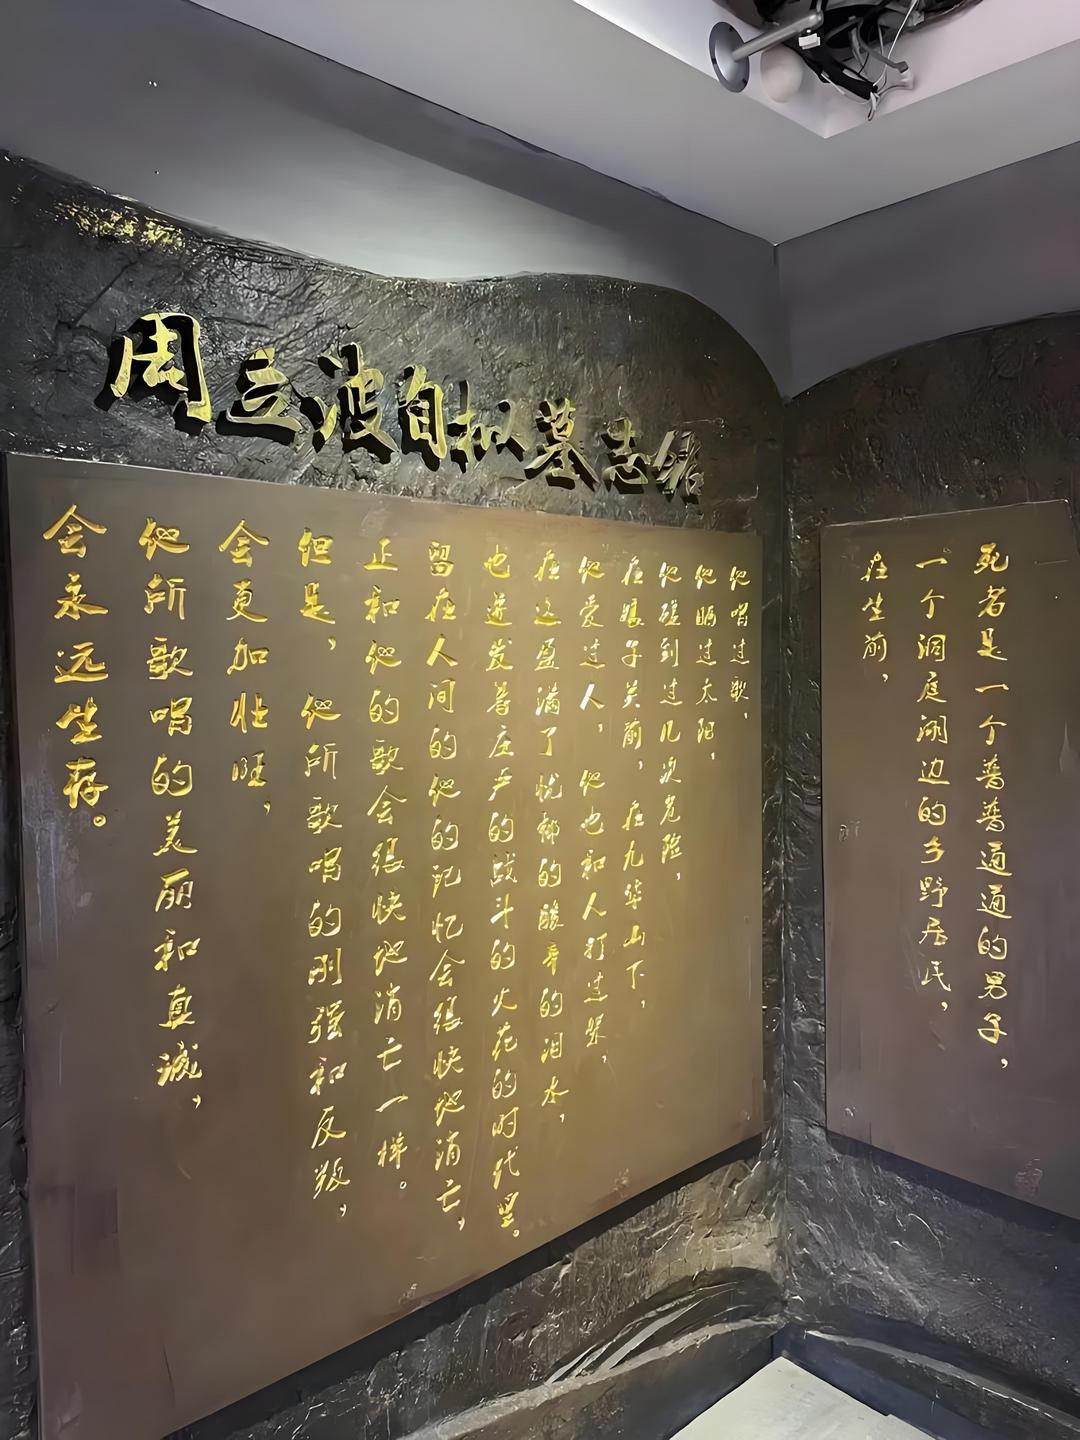 周立波自拟墓志铭
死者是一个普普通通的男子，
一个洞庭湖边的乡野居民，
在生前，
他唱过歌，
他晒过太阳，
他碰到过几次危险，
在娘子关前，在九华山下，
他爱过人，他也和人打过架，
在这盈满了忧郁的酸辛的泪水，
也迸发着庄严的战斗的火花的时代里。
留在人间的他的记忆会很快地消亡，
正和他的歌会很快地消亡一样。
但是，他所歌唱的刚强和反叛，
会更加壮旺，
他所歌唱的美丽和真诚，
会永远生存。